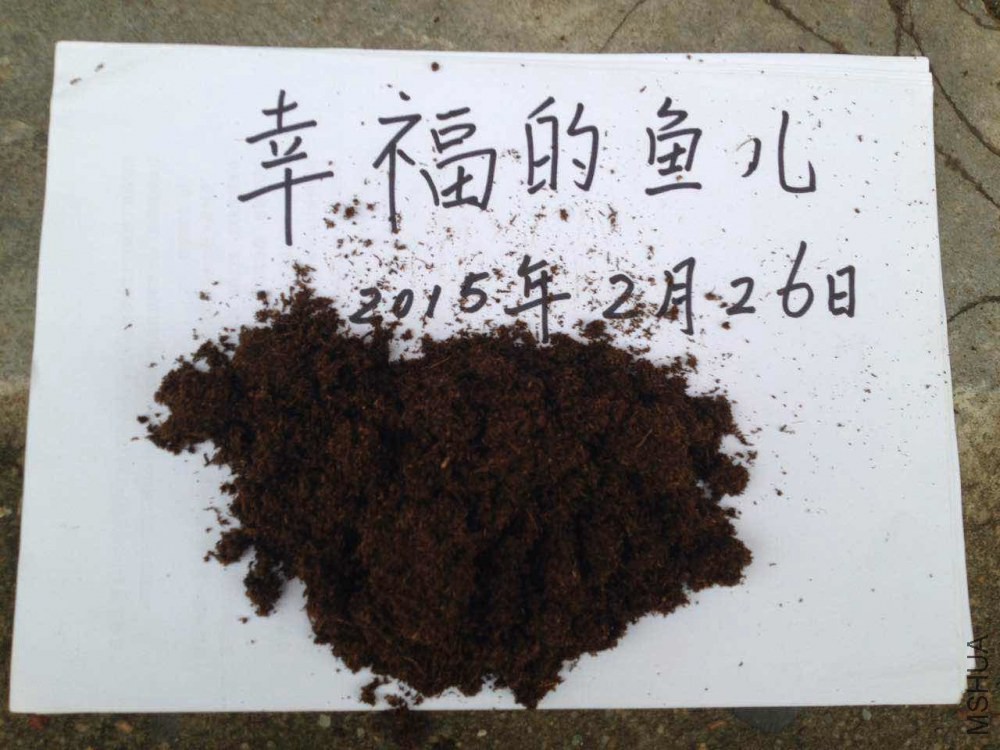 幸福的鱼儿
2015年2月26日
MSHUA